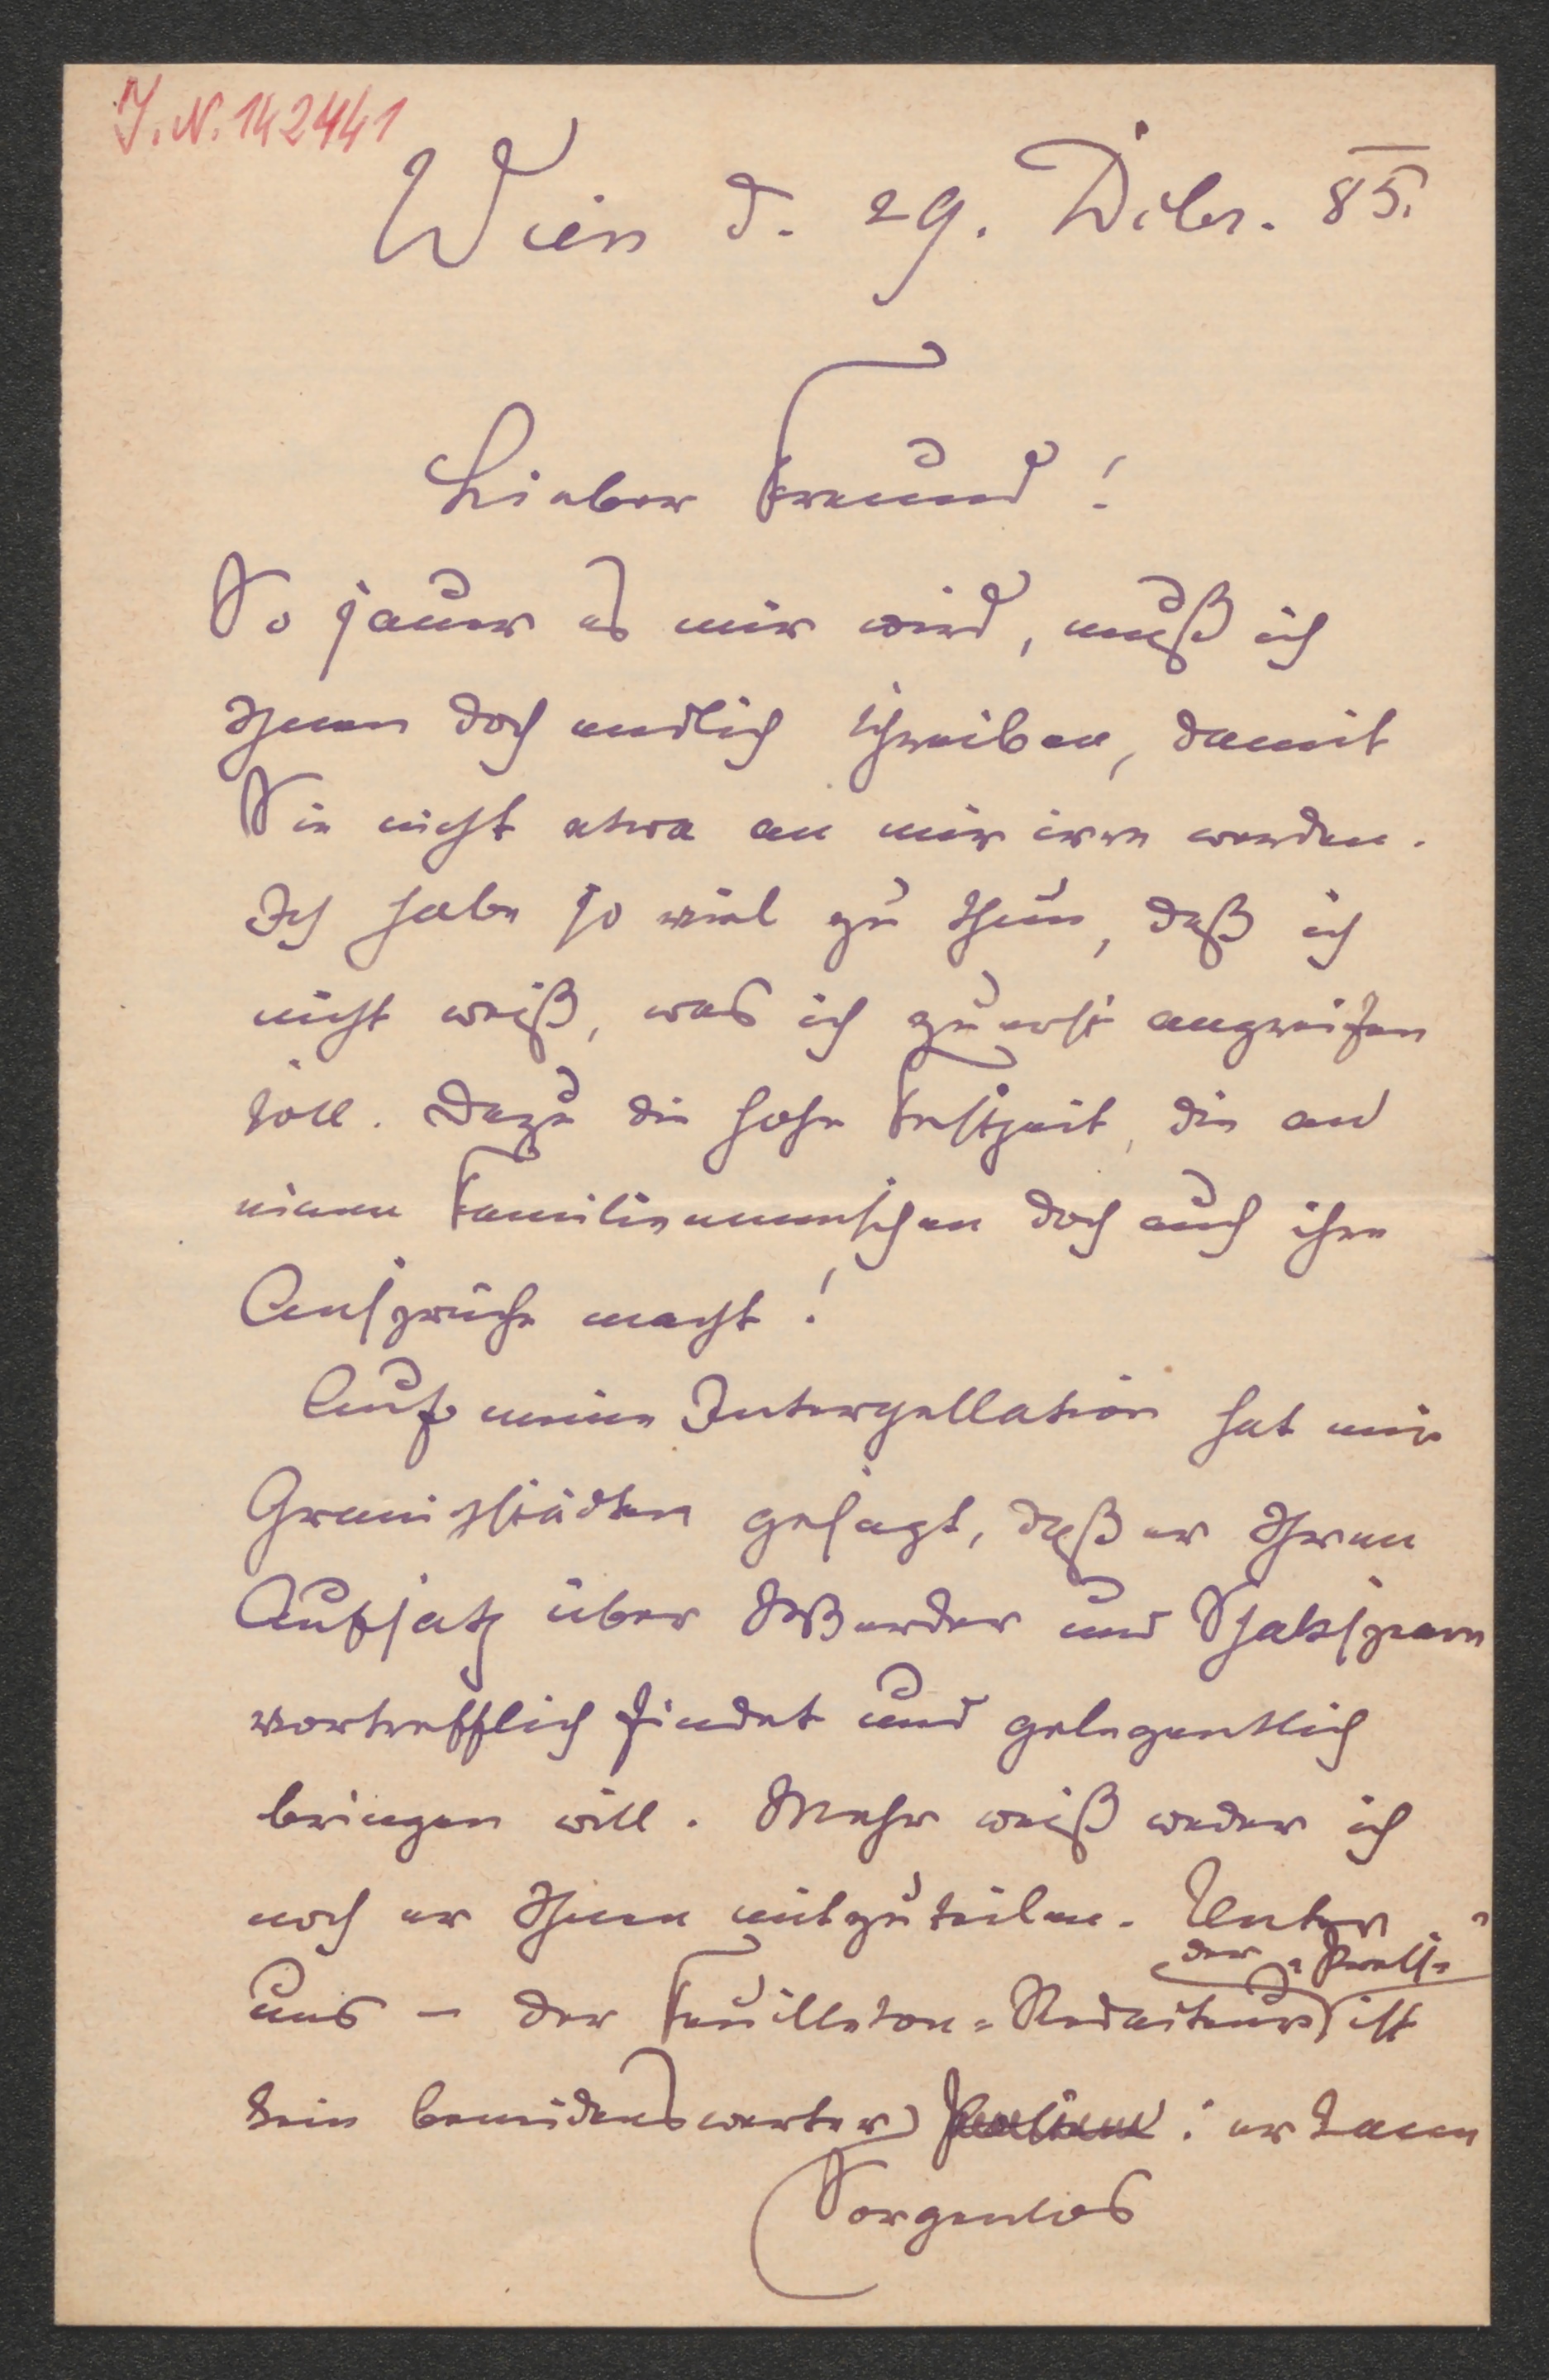 J. N. 142441
Wien d. 29. Dcbr. 85.
Lieber Freund!
So sauer es mir wird, muß ich
Ihnen doch endlich schreiben, damit
Sie nicht etwa an mir irre werden.
Ich habe so viel zu thun, daß ich
nicht weiß, was ich zuerst angreifen
soll. Dazu die hohe Festzeit, die an
einen Familienmenschen doch auch ihre
Ansprüche macht!
Auf meine Interpellation hat mir
Granichstädten gesagt, daß er Ihren
Aufsatz über Werder und Shakspeare
vortrefflich findet und gelegentlich
bringen will. Mehr weiß weder ich
noch er Ihnen mitzuteilen. Unter
der „Presse"
uns – der Feuilleton-Redakteur ist
kein beneidenswerter : er kann
Sorgenlos